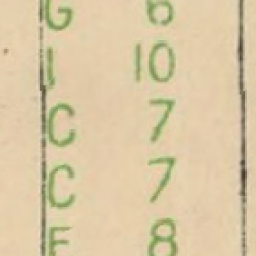 G 6
I 10
C 7
C 7
8